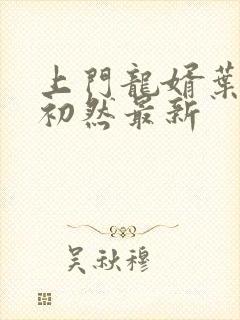 上門龍婿葉
初然最新
吳秋穆